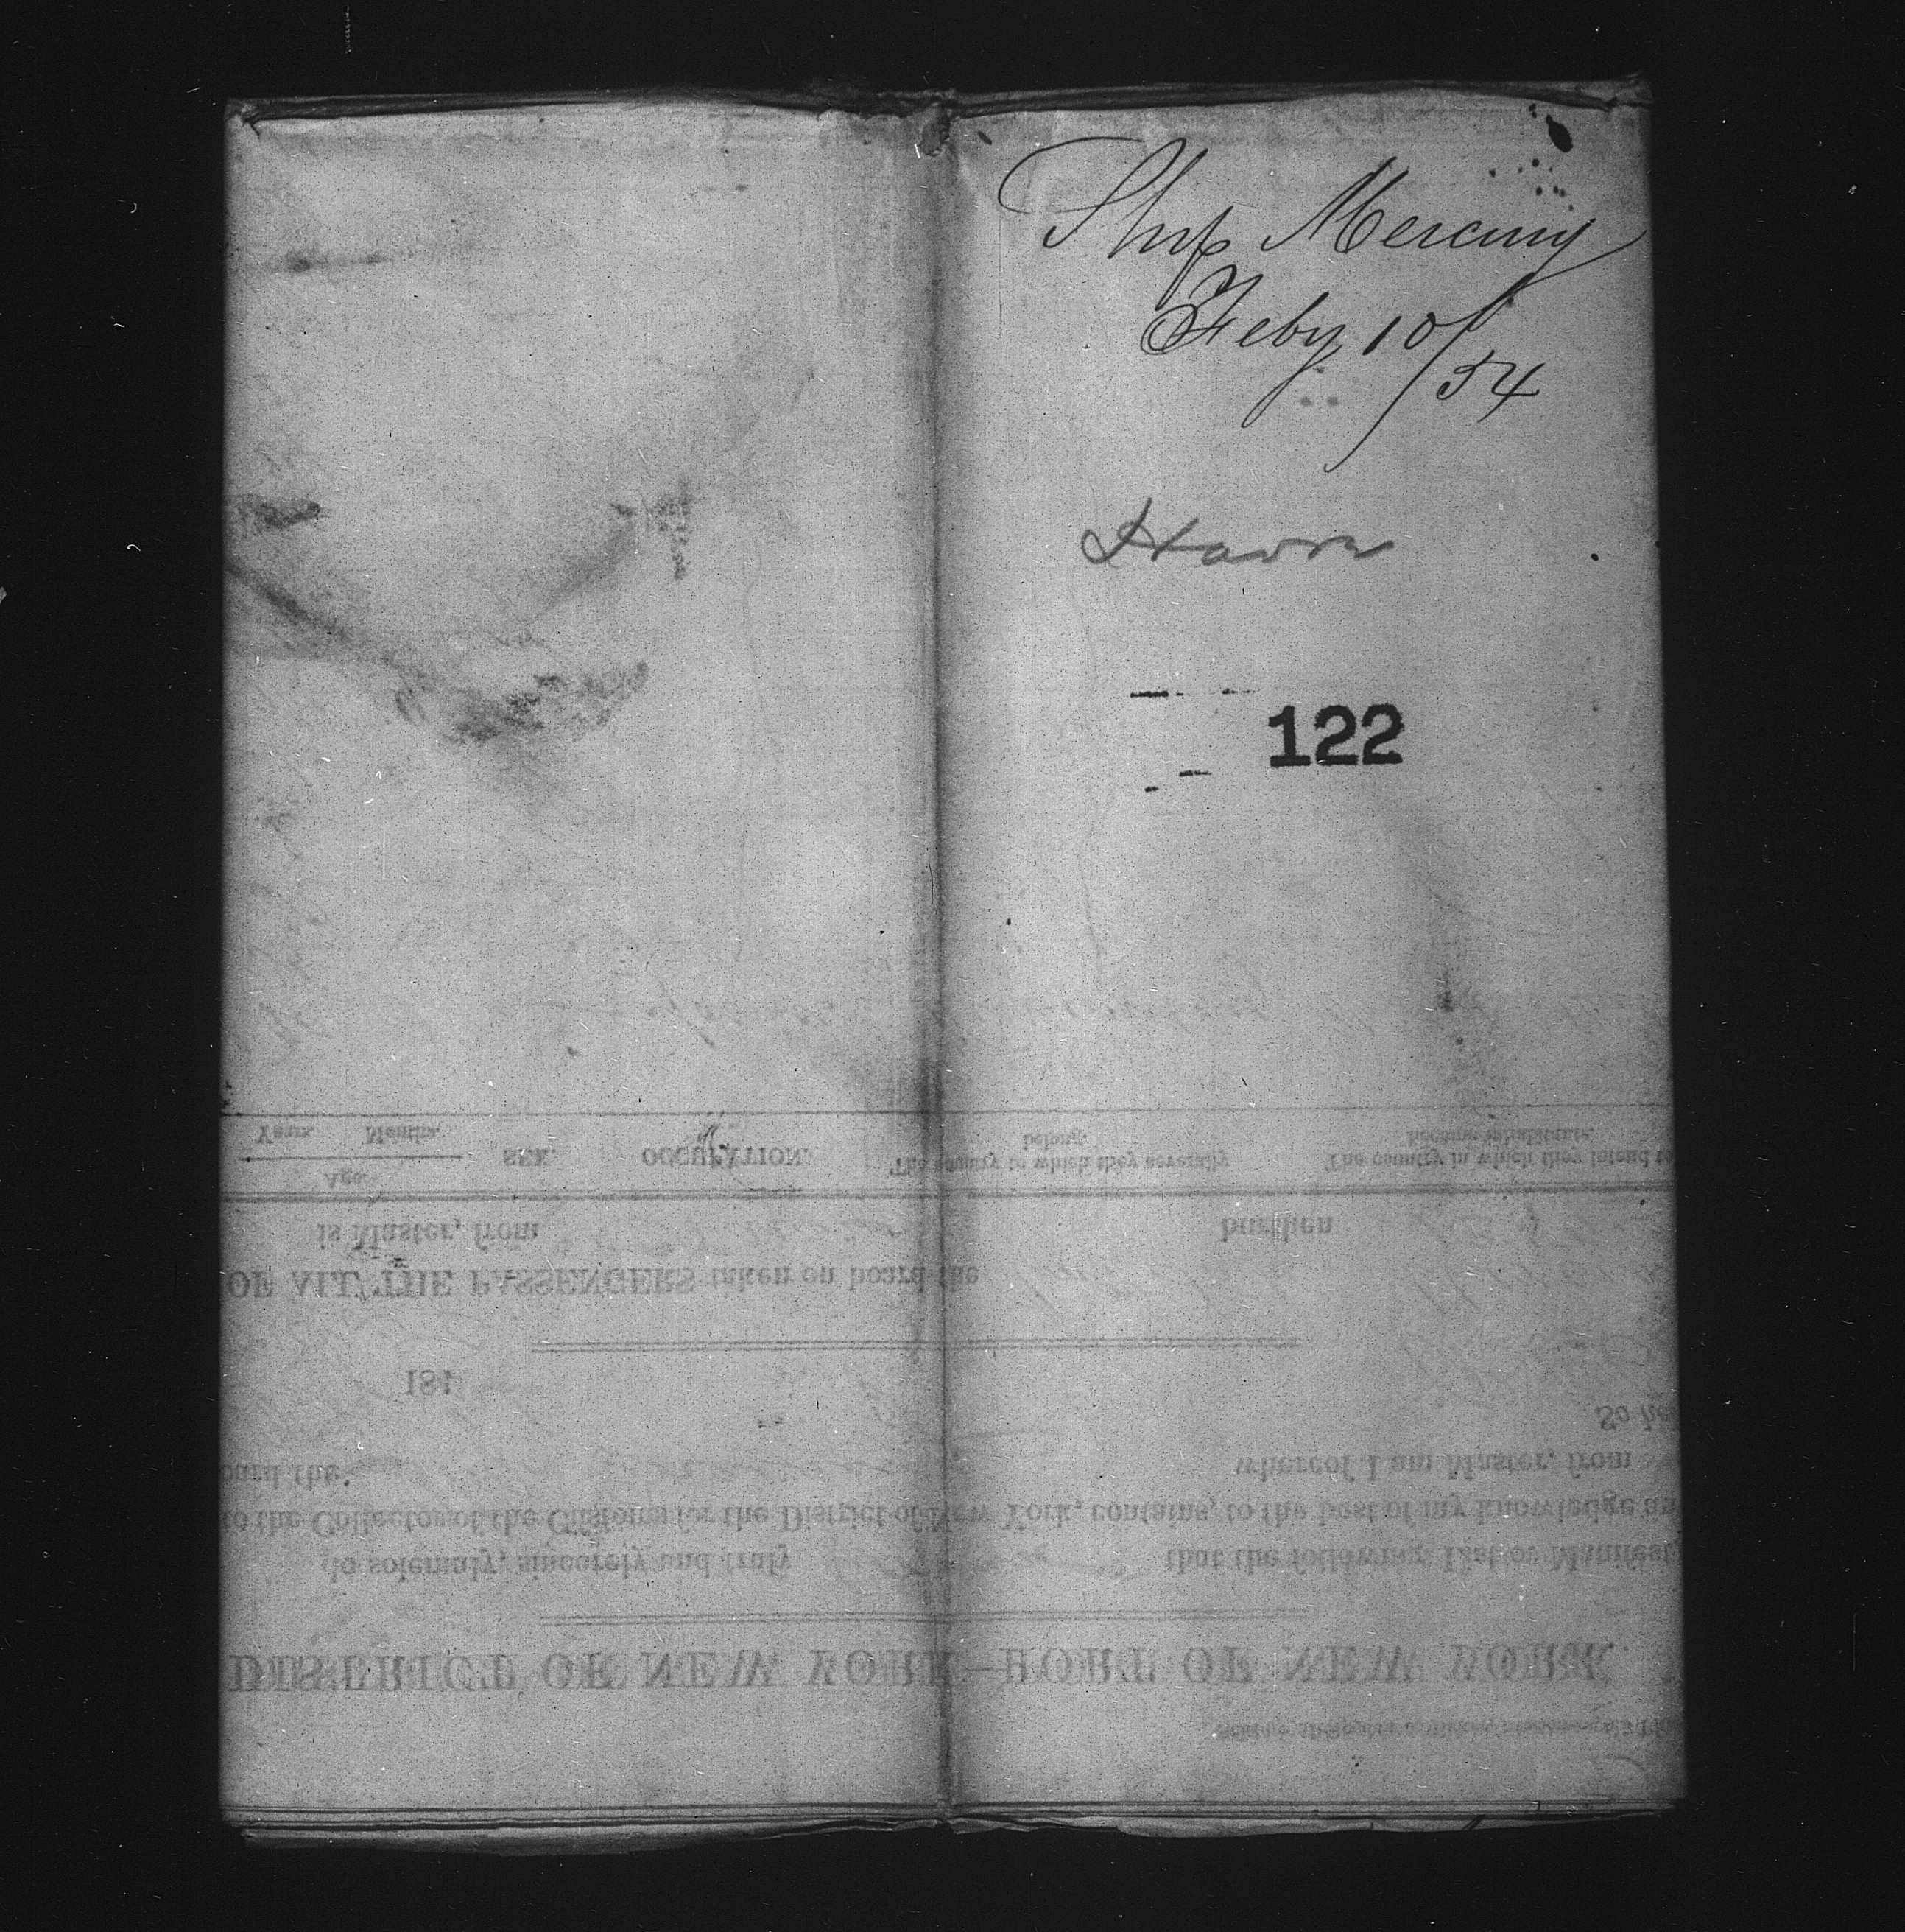 Ship Mercury
Feby 10/54
Havre
122
Years. Months.
Age.
SEX.
OCCUPATION.
belong.
The country to which they severally
become inhabitants.
The country in which they intend to
is Master, from burthen
OF ALL THE PASSENGERS taken on board the
184
So he
oard the whereof I am Master, from
to the Collector of the Customs for the District of New York, contains, to the best of my knowledge an
do solemnly, sincerely and truly that the following List or Manifest
DISTRICT OF NEW YORK—PORT OF NEW YORK.